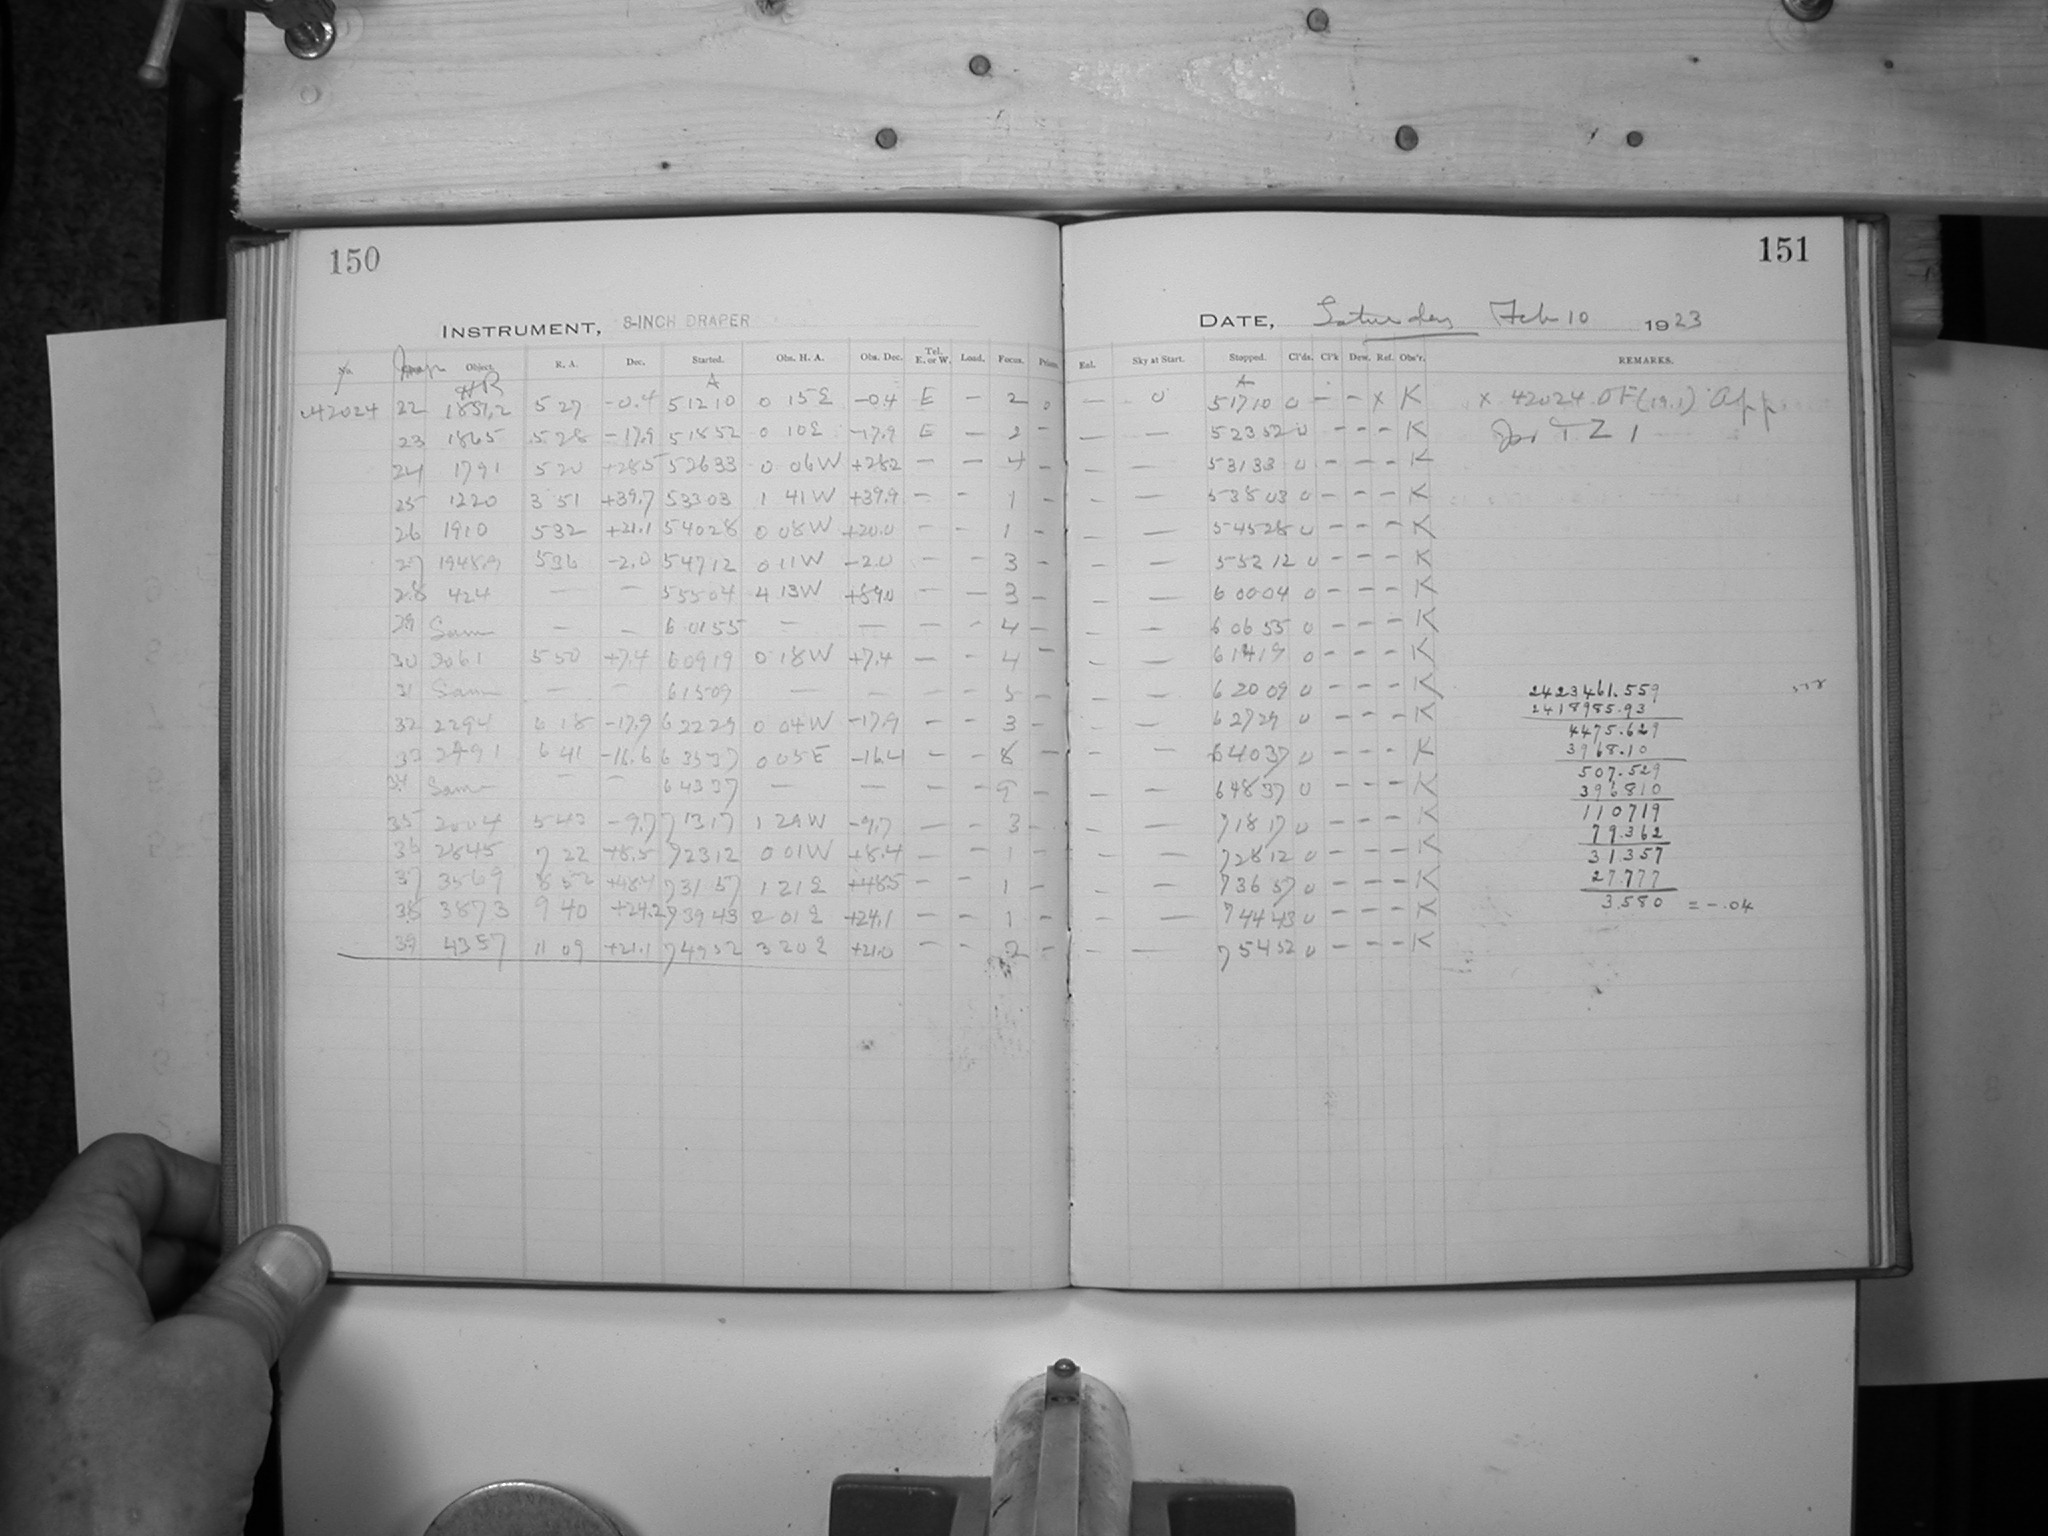 150
INSTRUMENT, 8-INCH DRAPER
No. Object. R. A. Dec. Started. Obs. H. A. Obs. Dec. Tel. E. or W. Load. Focus. Prisms
HR A
42024 22 1851,2 5 27 -0.4 5 12 10 0 15 E -0.4 E - 2 0
23 1865 5 28 -17.9 5 18 52 0 10 E -17.9 E - 2 -
24 1791 5 20 +28.5 5 26 33 0 06 W +28.2 - - 4 -
25 1220 3 51 +39.7 5 33 03 1 41 W +39.9 - - 1 -
26 1910 5 32 +21.1 5 40 28 0 08 W +20.0 - - 1 -
27 1948,9 5 36 -2.0 5 47 12 0 11 W -2.0 - - 3 -
28 424 - - 5 55 04 4 13 W +89.0 - - 3 -
29 Same - - 6 01 55 - - - - 4 -
30 2061 5 50 +7.4 6 09 19 0 18 W +7.4 - - 4 -
31 Same - - 6 15 09 - - - - 5 -
32 2294 6 18 -17.9 6 22 29 0 04 W -17.9 - - 3 -
33 2491 6 41 -16.6 6 35 37 0 05 E -16.4 - - 8 -
34 Same - - 6 43 37 - - - - 9 -
35 2004 5 43 -9.7 7 13 17 1 29 W -9.7 - - 3 -
36 2845 7 22 +8.5 7 23 12 0 01 W +8.4 - - 1 -
37 3569 8 52 +48.4 7 31 57 1 21 E +48.5 - - 1 -
38 3873 9 40 +24.2 7 39 43 2 01 E +24.1 - - 1 -
39 4357 11 09 +21.1 7 49 52 3 20 E +21.0 - - 2 -
151
DATE, Saturday Feb 10 1923
Enl. Sky at Start. Stopped. Cl'ds. Cl'k Dew. Ref. Obs'r. REMARKS.
A
- 0 5 17 10 0 - - x K x 42024 OF (19.1) App.
- - 5 23 52 0 - - - K for T Z 1
- - 5 31 33 0 - - - K
- - 5 38 03 0 - - - K
- - 5 45 28 0 - - - K
- - 5 52 12 0 - - - K
- - 6 00 04 0 - - - K
- - 6 06 55 0 - - - K
- - 6 14 19 0 - - - K
- - 6 20 09 0 - - - K
- - 6 27 29 0 - - - K
- - 6 40 37 0 - - - K
- - 6 48 37 0 - - - K
- - 7 18 17 0 - - - K
- - 7 28 12 0 - - - K
- - 7 36 57 0 - - - K
- - 7 44 43 0 - - - K
- - 7 54 52 0 - - - K
2423461.559
2418985.93
4475.629
3968.10
507.529
396810
110719
79.362
31.357
27.777
3.580 = -.04